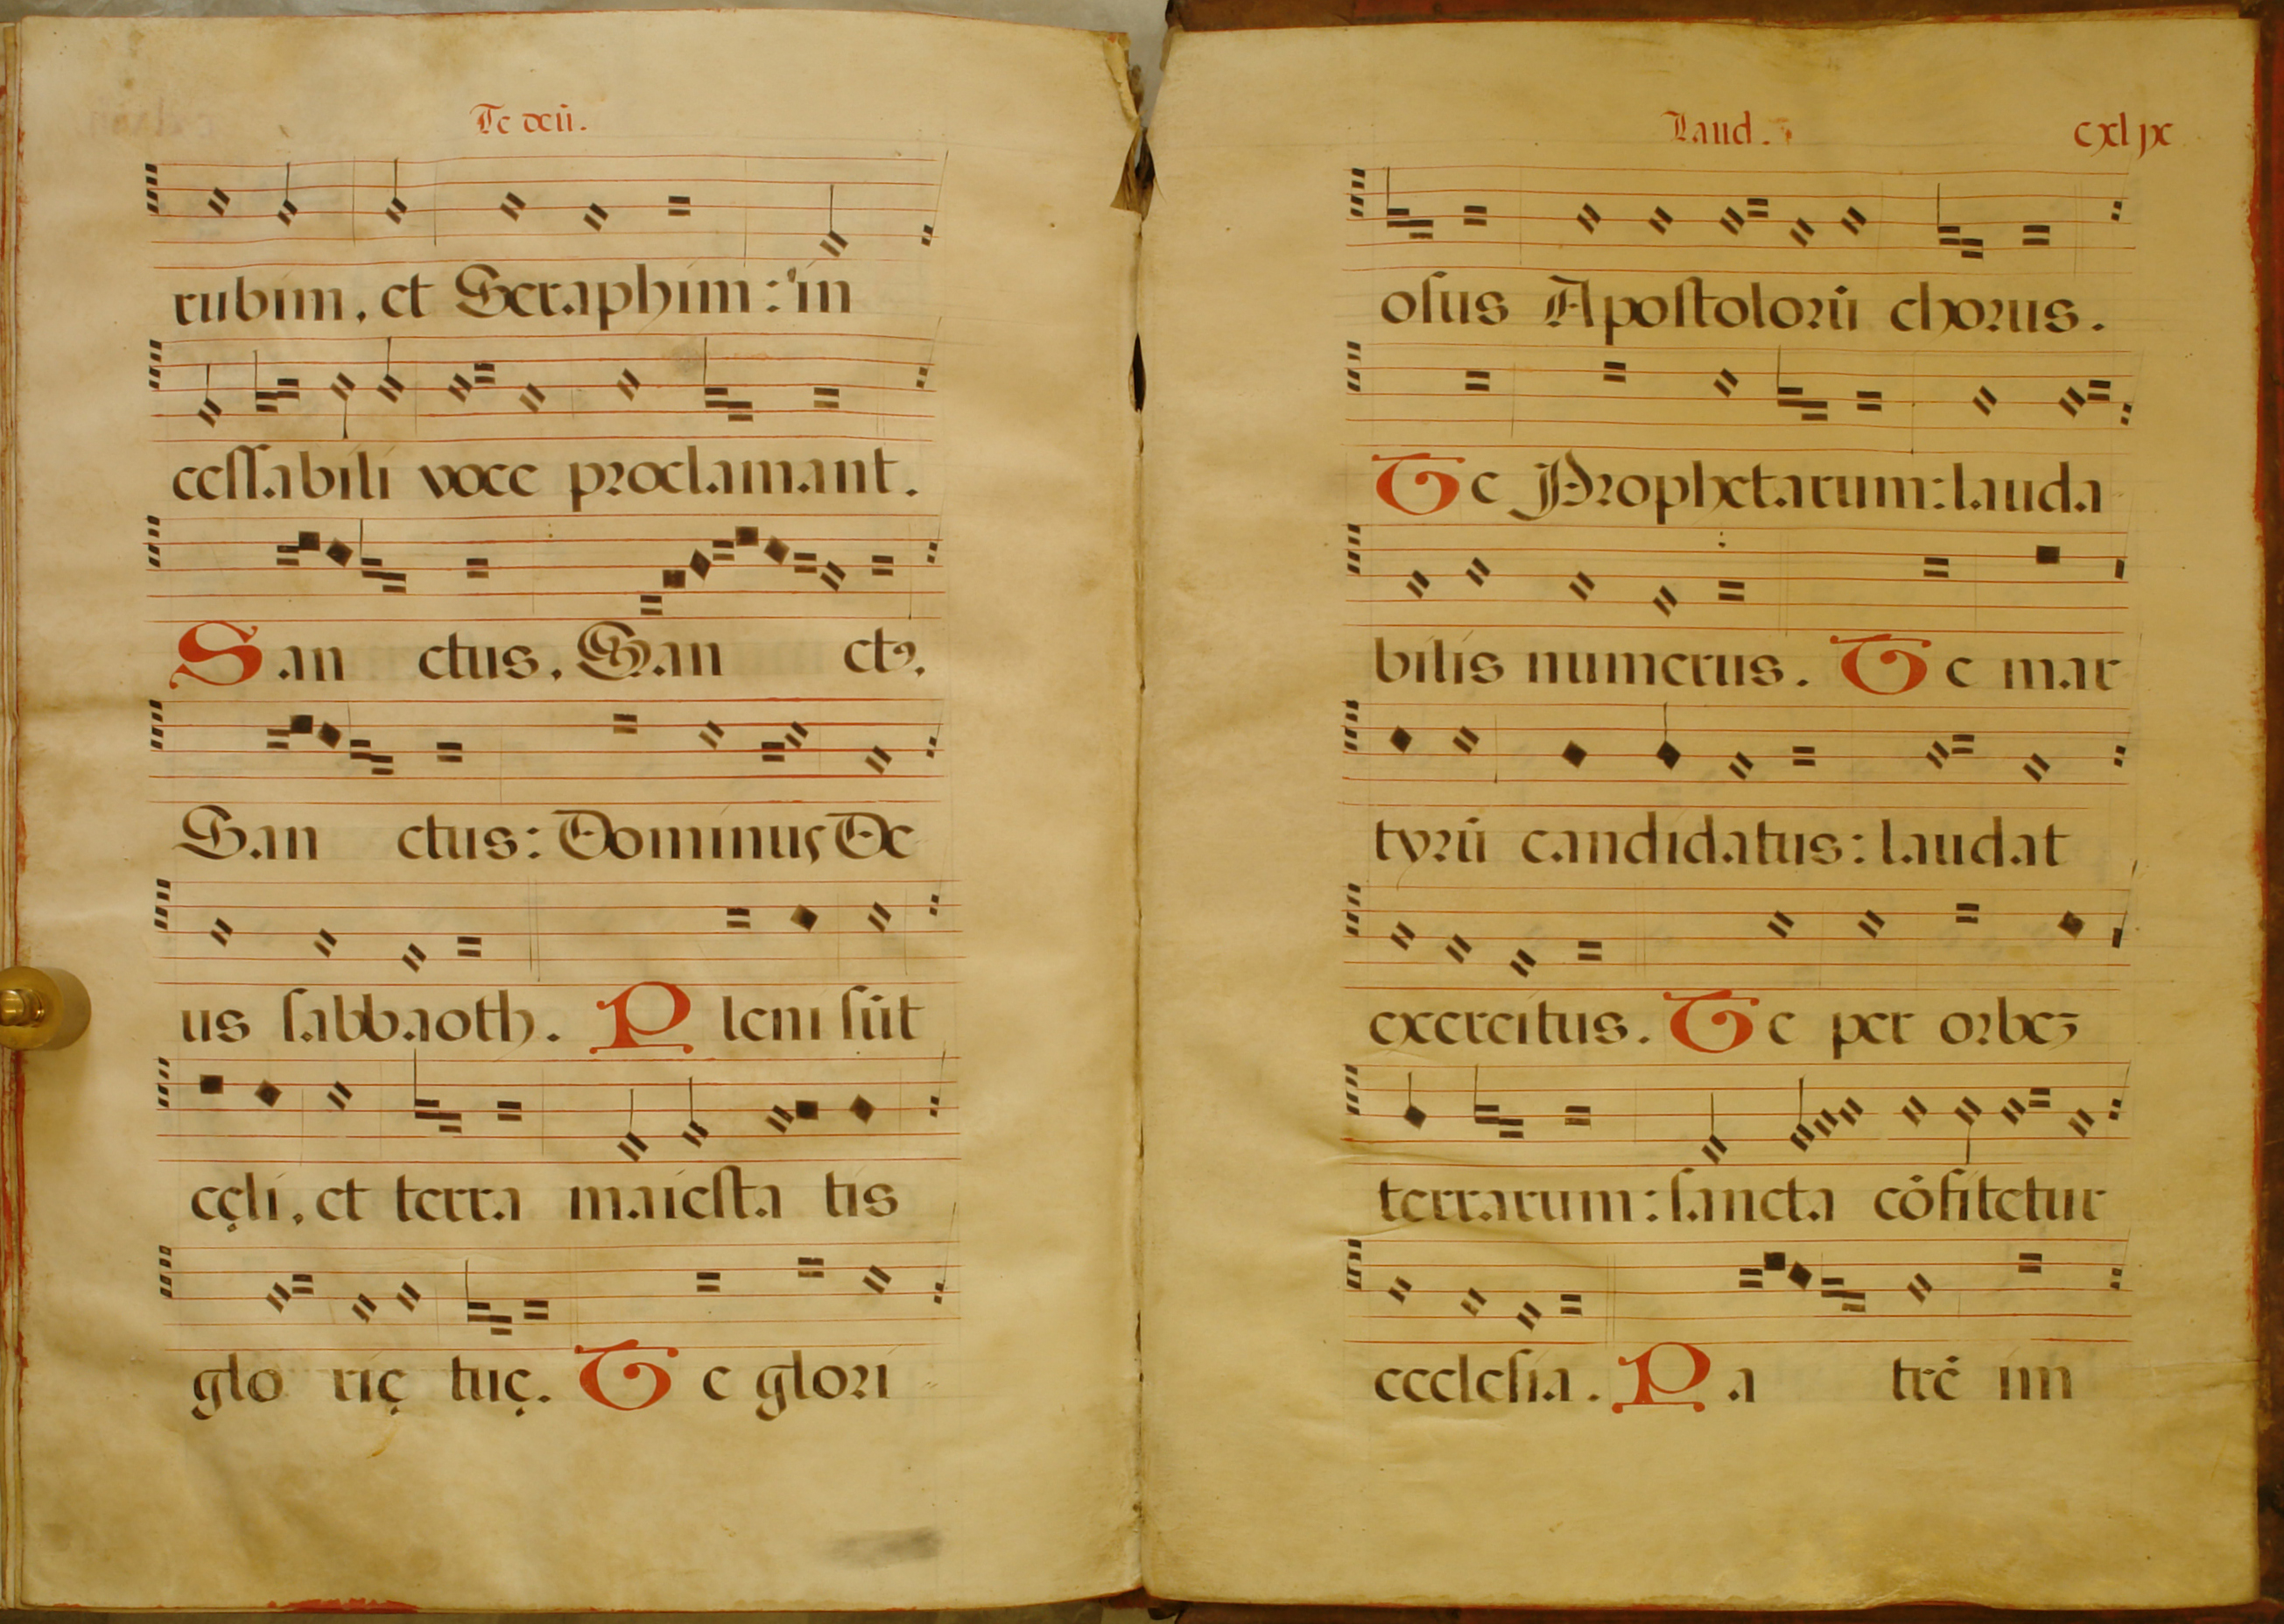 Te deū.
rubim, et Seraphim: in
ceſſabili voce proclamant.
San ctus. San ctꝰ.
San ctus: Dominus De
us ſabbaoth. Pleni ſūt
cęli, et terra maieſta tis
glo rię tuę. Te glori
Laud. cxlix
oſus Apoſtolorū chorus.
Te Prophetarum: lauda
bilis numerus. Te mar
tyrū candidatus: laudat
exercitus. Te per orbeʒ
terrarum: ſancta cōfitetur
eccleſia. Pa trē im